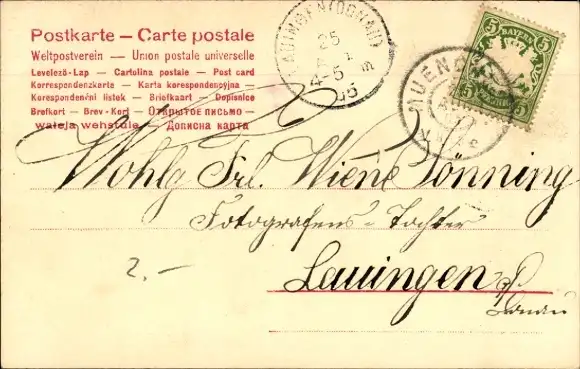 Postkarte — Carte postale
Weltpostverein — Union postale universelle
Levelező-Lap — Cartolina postale — Post card
Korrespondenzkarte — Karta korespondencyjna
Korespondenční lístek — Briefkaart — Dopisnice
Brefkort — Brev-Kort — Открытое письмо —
— Дописна карта
LAUINGEN (DONAU)
25
4-5
05
MUENCHEN
BAYERN
5 5
5 5
PFENNIG
Wohlg Frl. Wiene Sönning
Fotografens-Tochter
2.-
Lauingen
Donau